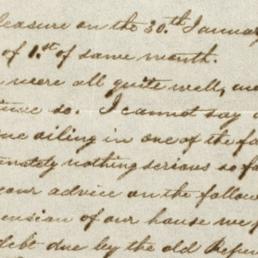 leasure on the 30.th January
of 1.st of same month.
were all quite well, and
so. I cannot say
ailing in one of the fa
nately nothing serious so fa
our advice on the follow
ension of our house we
debt due by the old Repu